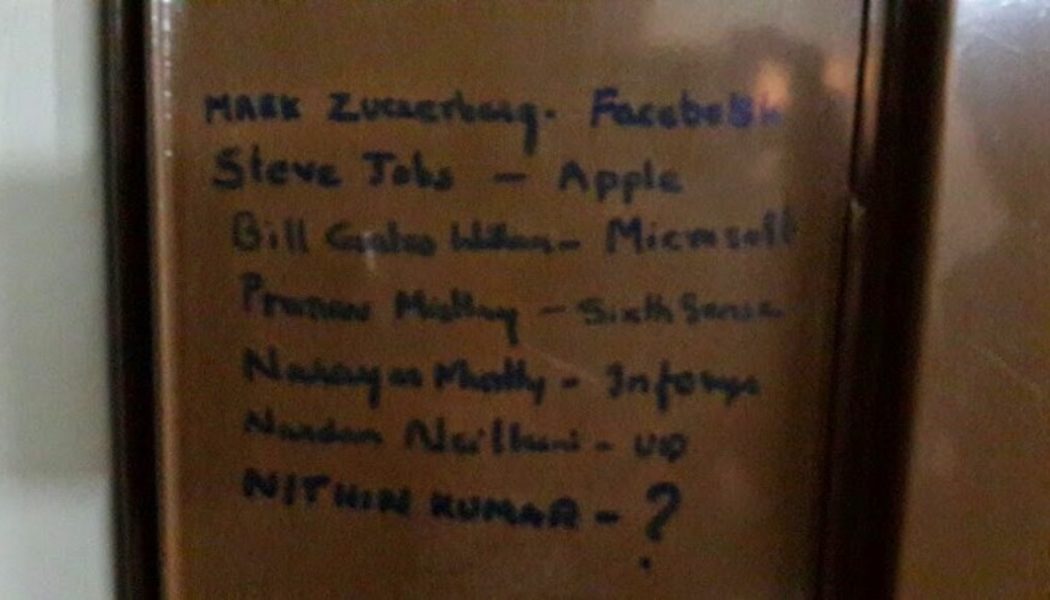 MARK Zuckerberg. Facebook
Steve Jobs - Apple
Bill Gates - Microsoft
Pranav Mistry - Sixth Sense
Narayan Murthy - Infosys
Nandan - UID
NITHIN KUMAR - ?